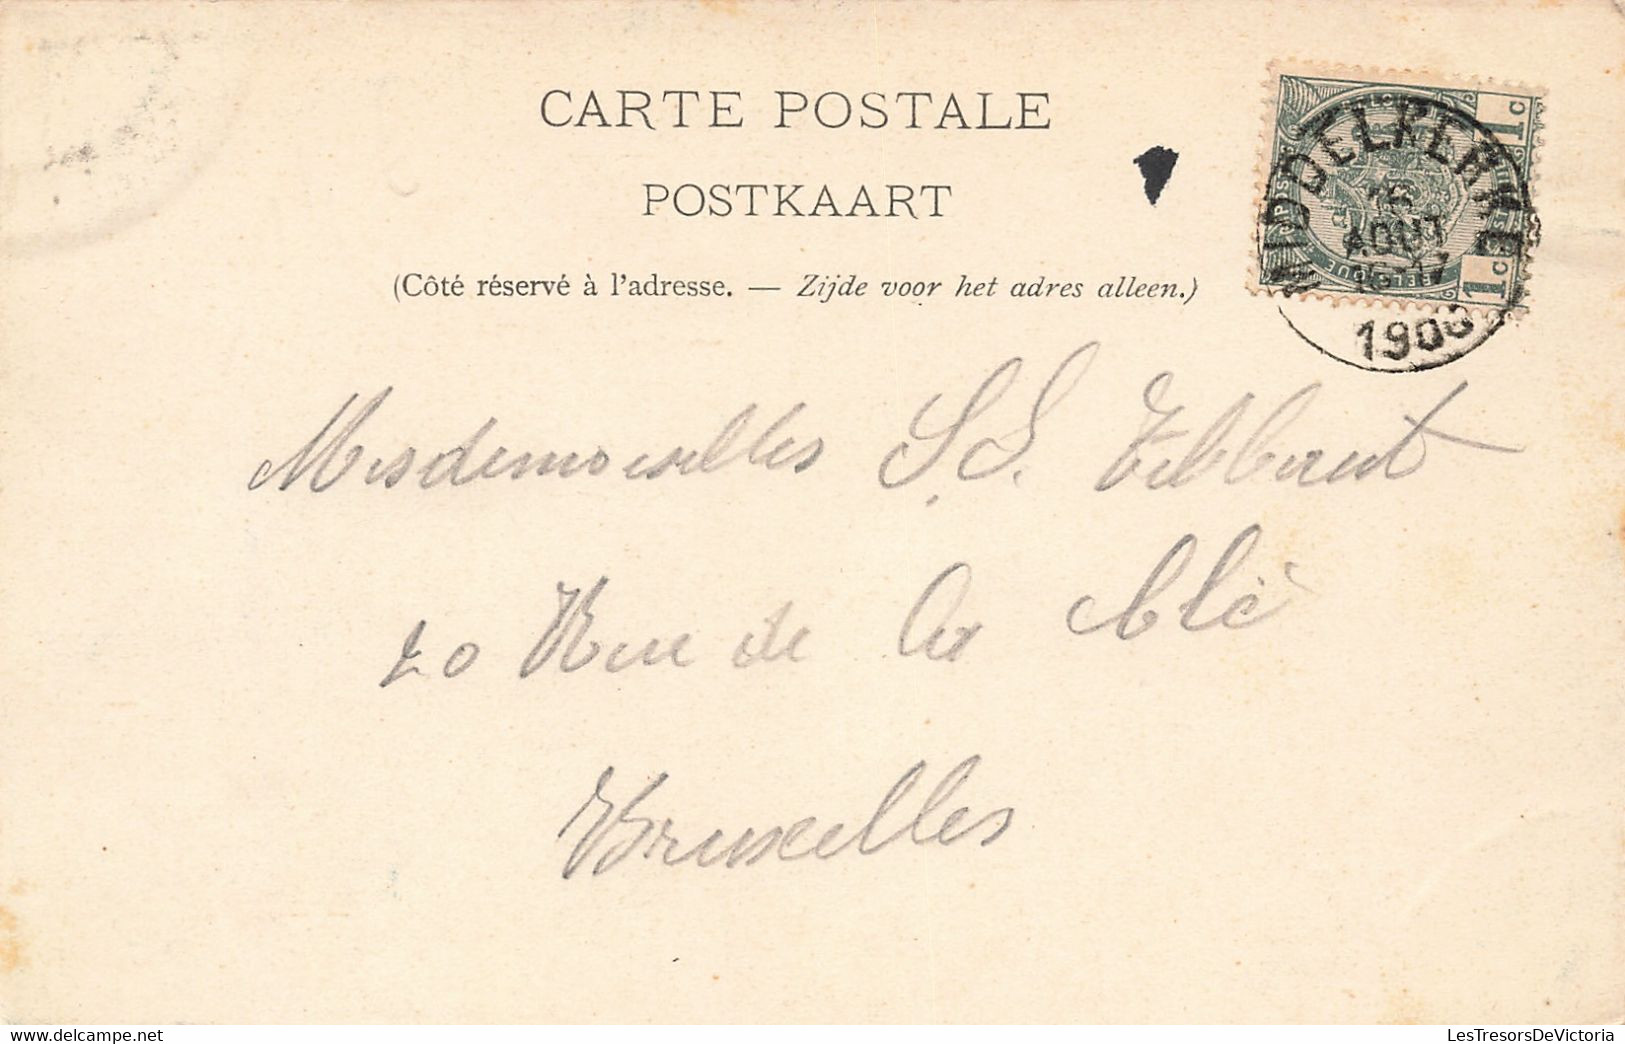 CARTE POSTALE
POSTKAART
(Côté réservé à l'adresse. — Zijde voor het adres alleen.)
1c
1c
MIDDELKERKE
AOUT
Mesdemoiselles S. S. Tibbaut
20 Rue de la Clé
Bruxelles
LesTresorsDeVictoria